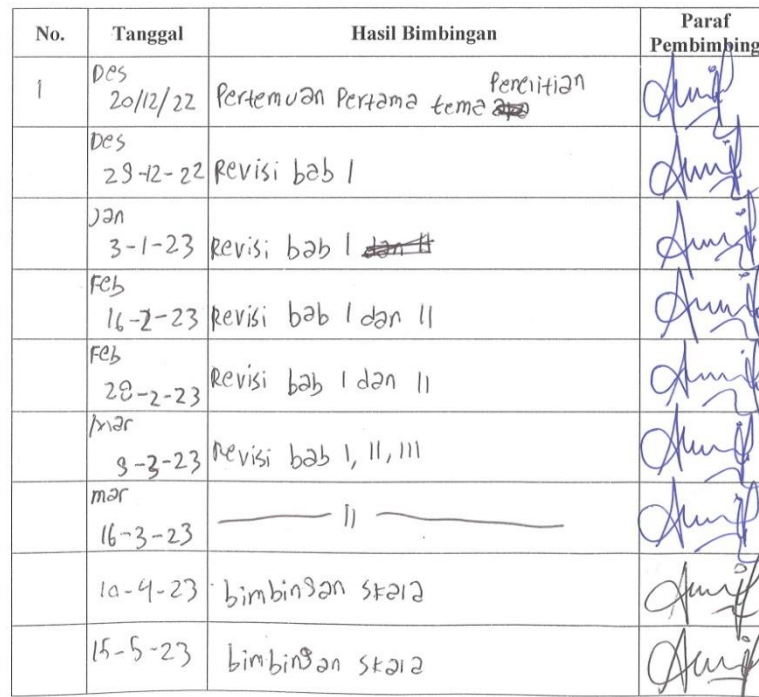 No. Tanggal Hasil Bimbingan Paraf Pembimbing
1 Des 20/12/22 Pertemuan Pertama tema Penelitian
Des 29-12-22 Revisi bab I
Jan 3-1-23 Revisi bab I dan II
Feb 16-2-23 Revisi bab I dan II
Feb 28-2-23 Revisi bab I dan II
Mar 9-3-23 Revisi bab I, II, III
mar 16-3-23 —— 11 ——
10-4-23 bimbingan skala
15-5-23 bimbingan skala